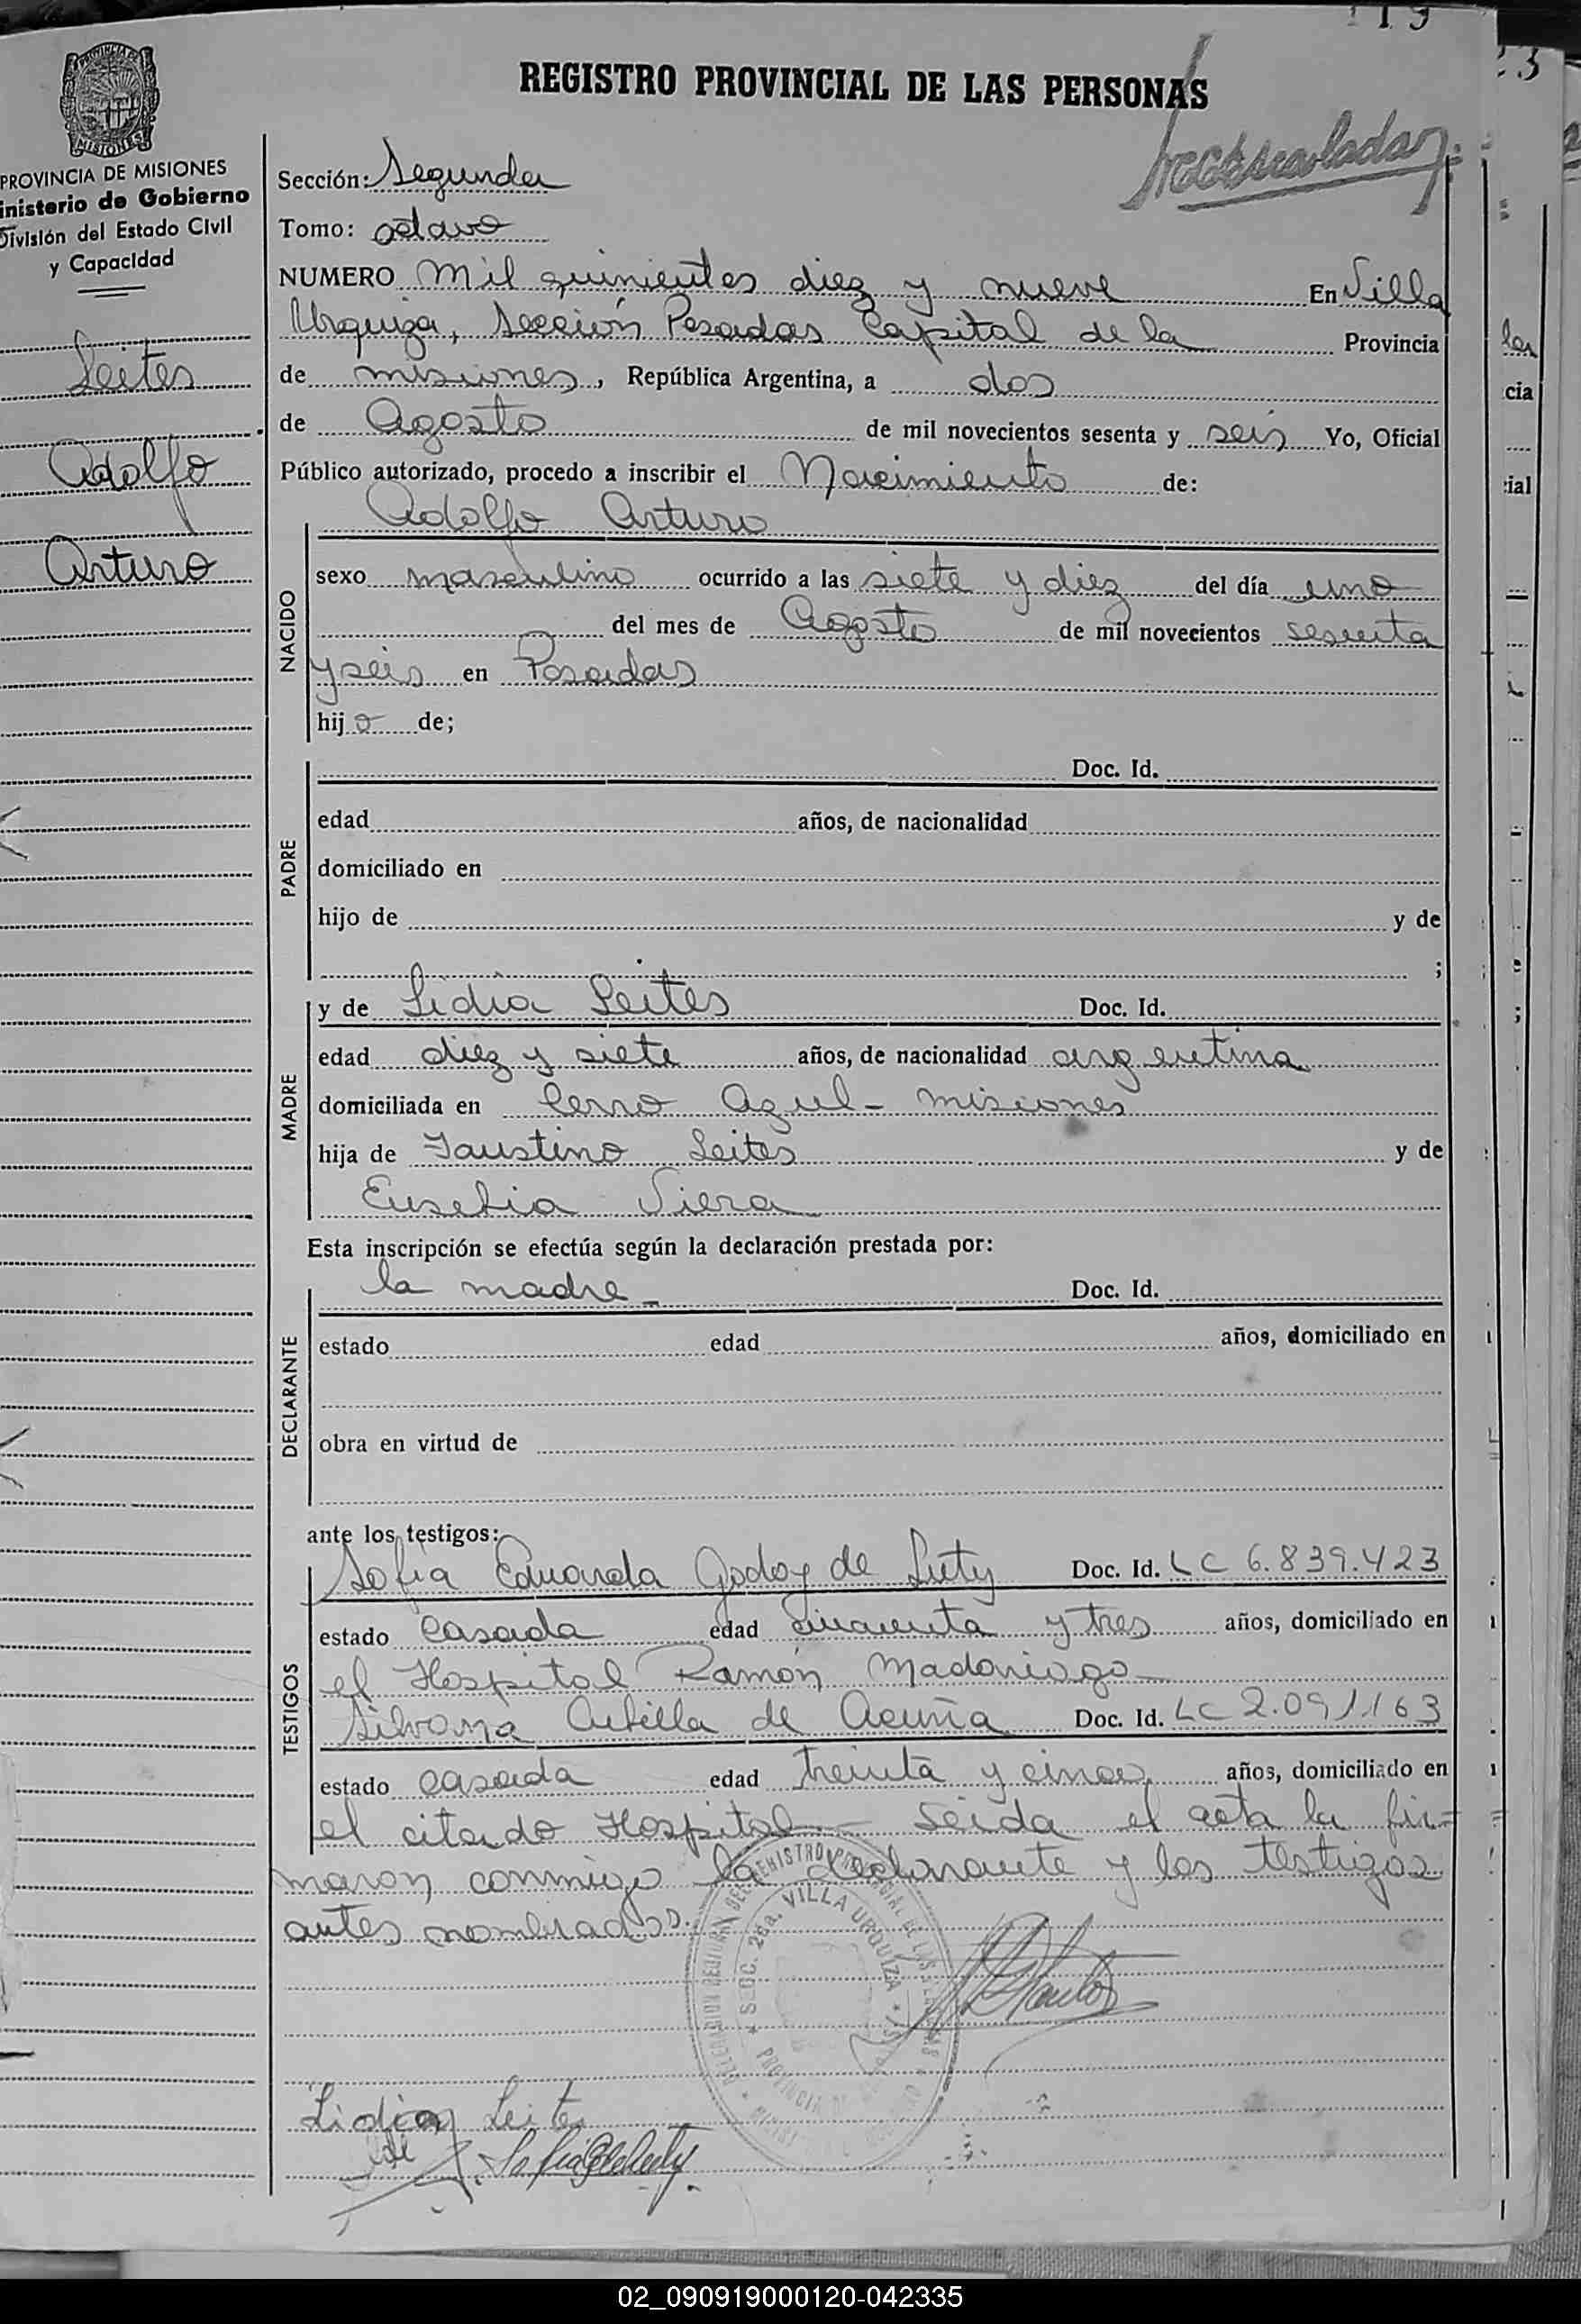 119
23
REGISTRO PROVINCIAL DE LAS PERSONAS
MISIONES
PROVINCIA DE MISIONES
inisterio de Gobierno
División del Estado Civil
y Capacidad
Leites
Adolfo
Arturo
Sección: Segunda
Tomo: octavo
NUMERO Mil quinientos diez y nueve En Villa
Urquiza, Sección Posadas Capital de la Provincia
de misiones, República Argentina, a dos
de Agosto de mil novecientos sesenta y seis Yo, Oficial
Público autorizado, procedo a inscribir el Nacimiento de:
NACIDO
Adolfo Arturo
sexo masculino ocurrido a las siete y diez del día uno
del mes de Agosto de mil novecientos sesenta
y seis en Posadas
hijo de;
PADRE
Doc. Id.
edad años, de nacionalidad
domiciliado en
hijo de y de
;
MADRE
y de Lidia Leites Doc. Id.
edad diez y siete años, de nacionalidad argentina
domiciliada en Cerro Azul - misiones
hija de Faustino Leites y de
Eusebia Viera
Esta inscripción se efectúa según la declaración prestada por:
DECLARANTE
la madre - Doc. Id.
estado edad años, domiciliado en
obra en virtud de
ante los testigos:
TESTIGOS
Sofia Eduarda Godoy de Luty Doc. Id. LC 6.839.423
estado casada edad cincuenta y tres años, domiciliado en
el Hospital Ramón Madariaga
Silvana de Acuña Doc. Id. LC 2.091.163
estado casada edad treinta y cinco años, domiciliado en
el citado Hospital.- Leida el acta la fir-
maron conmigo la declarante y los testigos
antes nombrados.
SECC. 2da. VILLA URQUIZA
Lidia Leites
02_090919000120-042335